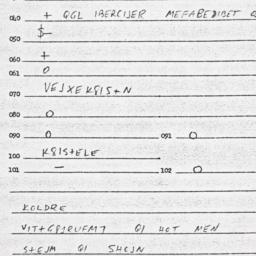 040 + QGL IBERCIJER MEFABEDIBET
$-
060 +
061 0
070 VEJXEK8IS+N
080 0
090 0 091 0
100 K8IS+ELE
101 - 102 0
KOLDRE
QI HOT MEN
S+EJM QI SHOJN